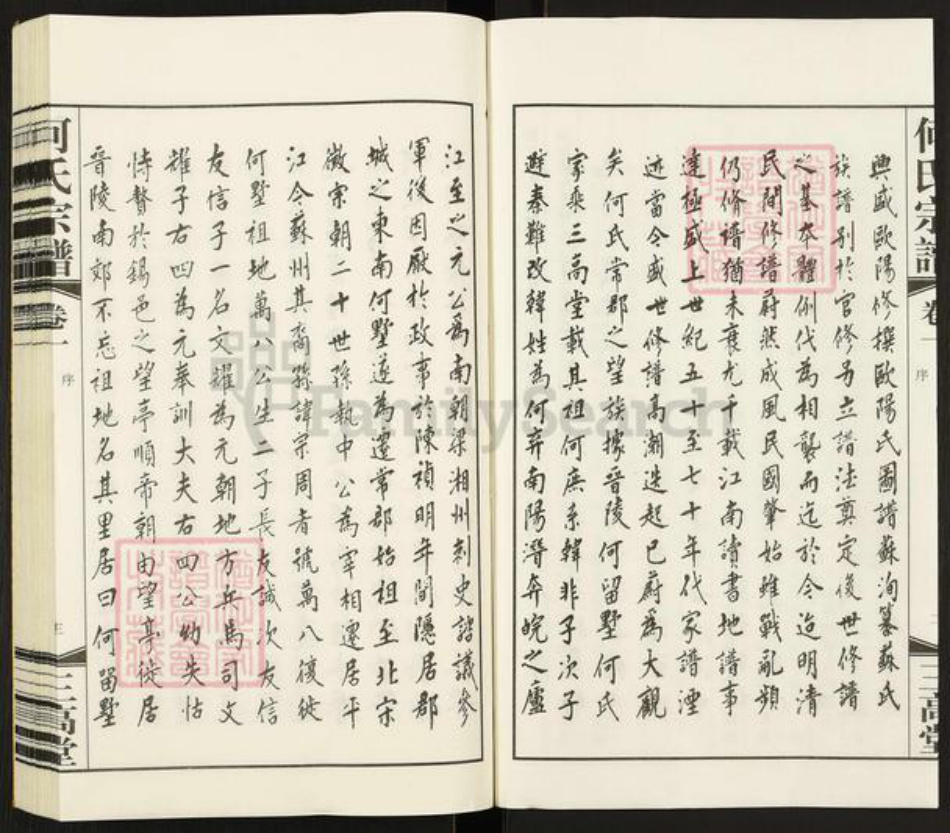 興盛歐陽修撰歐陽氏圖譜蘇洵纂蘇氏
族譜别於官修另立譜法奠定後世修譜
之基本體例代為相襲而迄於今迨明清
民間修譜蔚然成風民國肇始雖戰亂頻
仍修譜猶未衰尤千載江南讀書地譜事
達極盛上世紀五十至七十年代家譜湮
迹當今盛世修譜高潮迭起已蔚為大觀
矣何氏常郡之望族據晉陵何留墅何氏
家乘三高堂載其祖何庶系韓非子次子
避秦難改韓姓為何弃南陽潛奔皖之廬
江至之元公爲南朝梁湘州刺史諮議參
軍後因厭於政事於陳禎明年間隱居郡
城之東南何墅遂為遷常郡始祖至北宋
徽宗朝二十世孫執中公為宰相遷居平
江今蘇州其裔孫諱宗周者號萬八復徙
何墅祖地萬八公生二子長友誠次友信
友信子一名文耀為元朝地方兵馬司文
耀子右四為元奉訓大夫右四公幼失怙
恃贅於錫邑之望亭順帝朝由望亭徙居
晉陵南郊不忘祖地名其里居曰何留墅
何氏宗譜
卷一
序
三
三高堂
FamilySearch